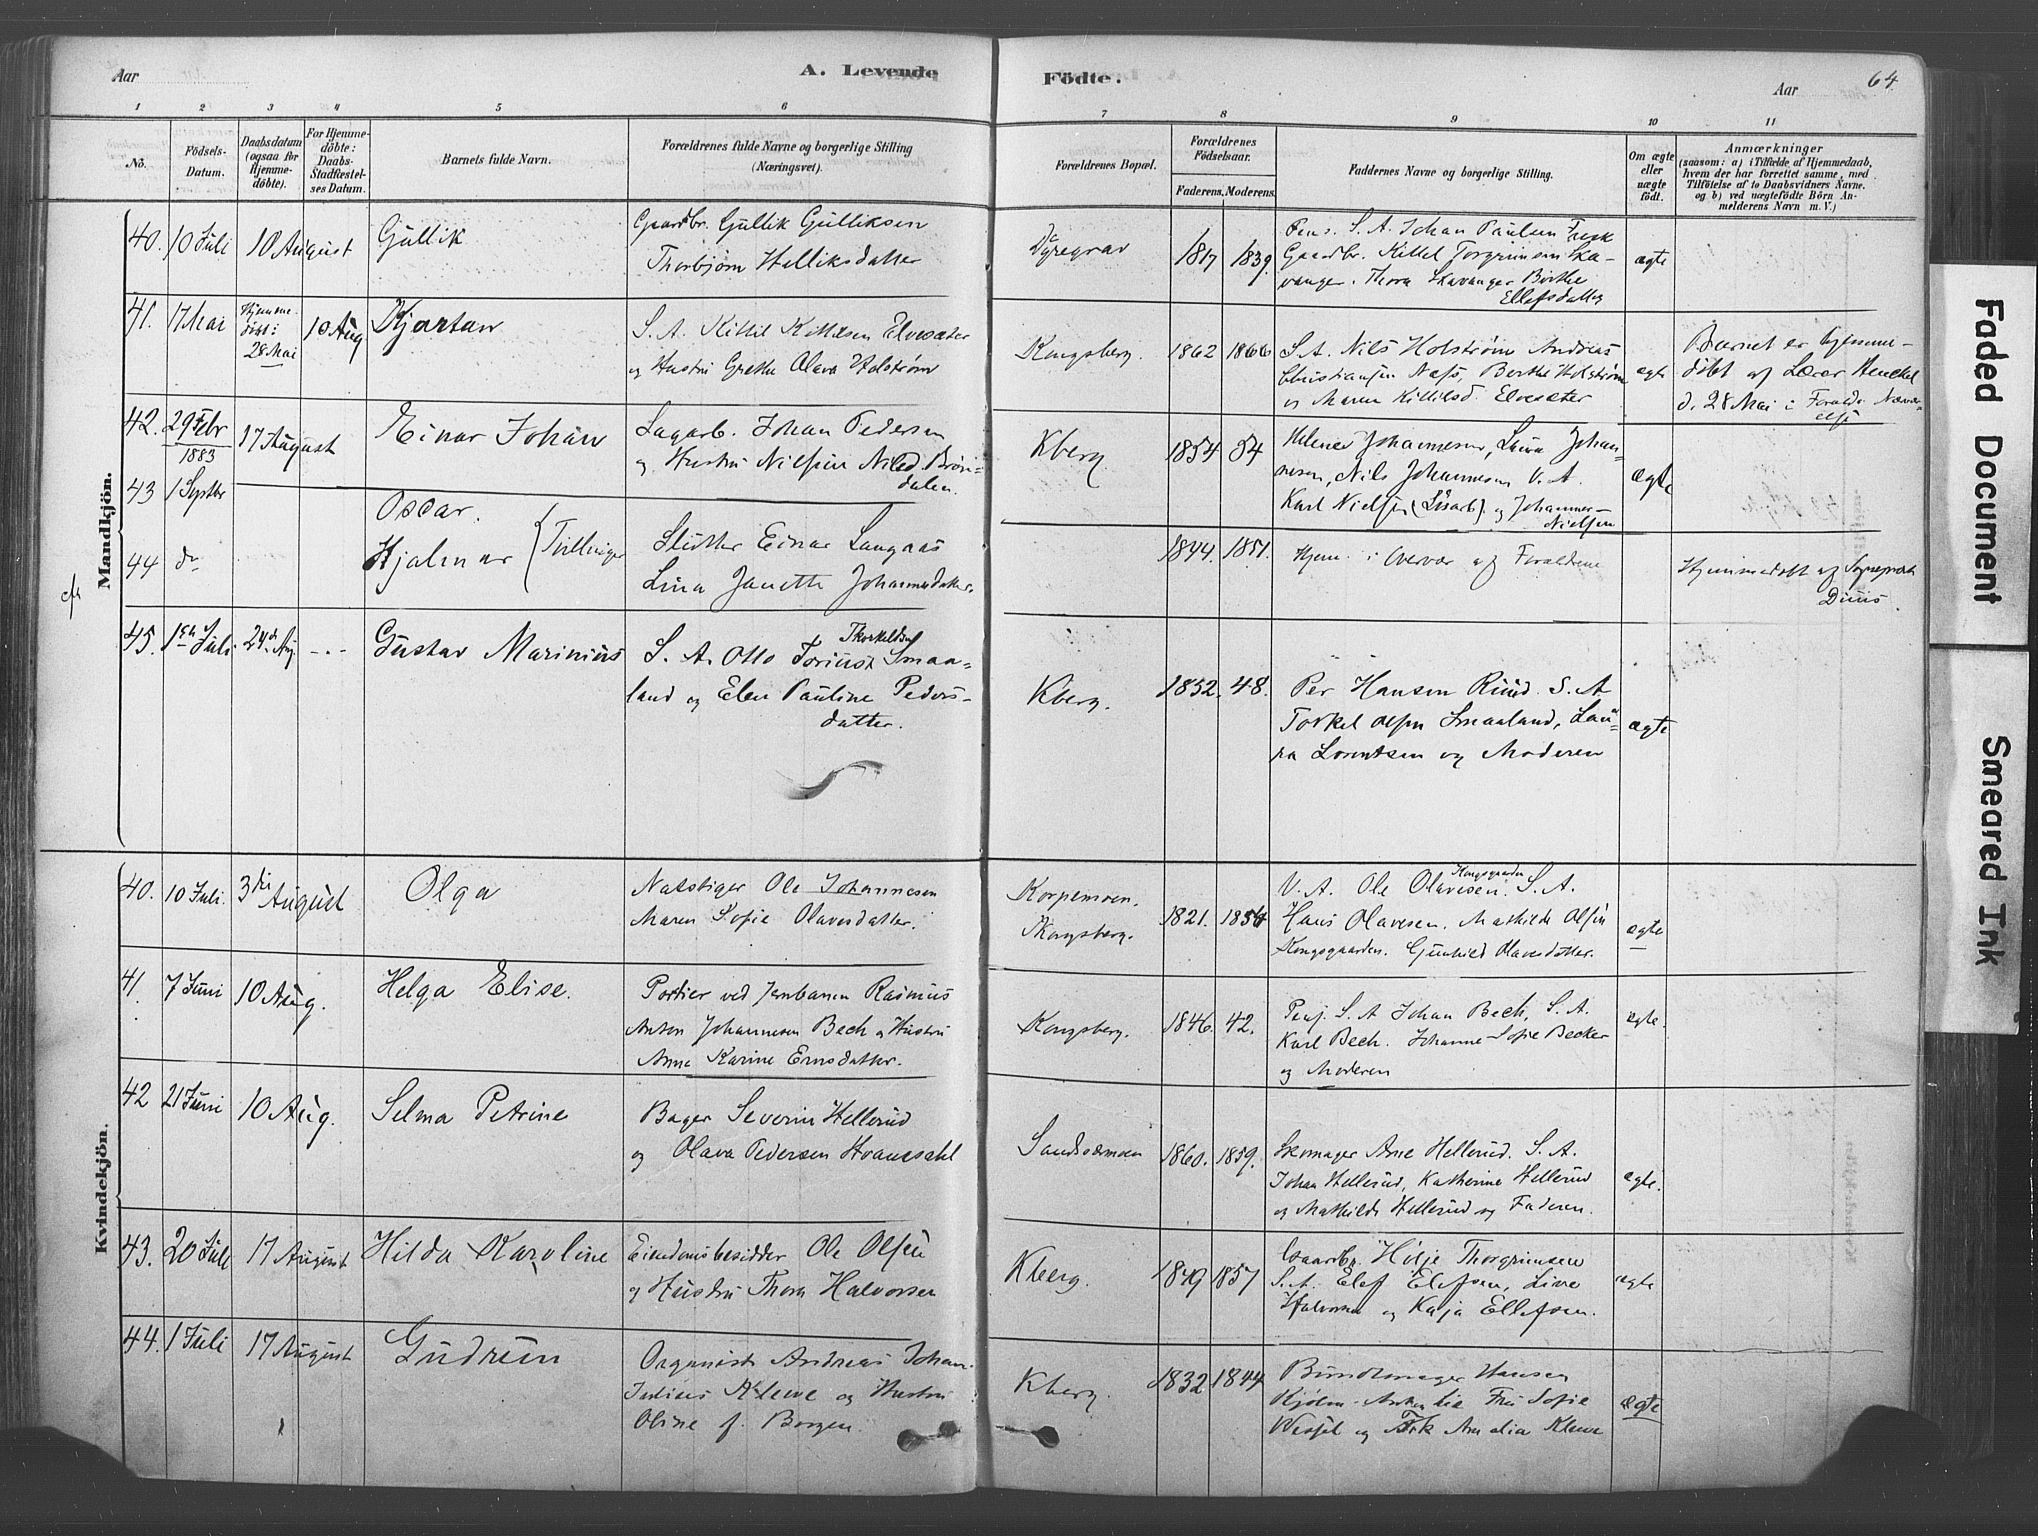 Aar
A. Levende
Födte.
Aar
64
1 2 3 4 5 6 7 8 9 10 11
No.
Födsels-
Datum.
Daabsdatum
(ogsaa for
Hjemme-
döbte).
For Hjemme-
döbte:
Daabs-
Stadfæstel-
ses Datum.
Barnets fulde Navn.
Forældrenes fulde Navne og borgerlige Stilling
(Næringsvei).
Forældrenes Bopæl.
Forældrenes
Födselsaar.
Faderens. Moderens.
Faddernes Navne og borgerlige Stilling.
Om ægte
eller
uægte
födt.
Anmærkninger
(saasom: a) i Tilfælde af Hjemmedaab,
hvem der har forrettet samme, med
Tilföielse af to Daabsvidners Navne.
og b) ved uægtefödte Börn An-
melderens Navn m. V.)
Mandkjön.
40. 10 Juli 10 August Gullik
Gaardbr. Gullik Gulliksen
Thorbjørn Helliksdatter
Dyregrav 1817 1839.
Pens. S. A. Johan Paulsen
Gaardbr. Kittel Torgrimsen Ska-
vanger. Thora Skavanger Birthe
Ellefsdatter
ægte
41. 17 Mai
Hjemme-
döbt:
28 Mai
10 Aug Kjartan
S. A. Kittil Kittilsen Elvesæter
og Hustru Grethe Olava Holstrøm
Kongsberg. 1862 1866
S. A. Nils Holstrøm Andreas
Christiansen Næss, Berthe Holstrøm
og Maren Kittilsd. Elvesæter
ægte
Barnet er hjemme-
döbt af Lærer Henckel
d. 28 Mai i Forældr. Nærvær-
else
42. 29 Febr
1883
17 August Einar Johan
Sagarb. Johan Pedersen
og Hustru Nilsine Nilsd. Brøn-
dalen.
Kberg 1854 54
Helene Johannesen, Laura Johan-
nesen, Nils Johannesen V. A.
Karl Nielsen (Løsarb) og Johannes
Nielsen
ægte
43 1 Septbr Oscar.
44 do Hjalmar (Tvillinger
Slutter Einar Langaas
Lina Janette Johannesdatter.
1844. 1851.
Hjem. i Overvær af Forældrene
Hjemmedöbt af Sogneprest
Duus.
45. 1ste Juli 24de Aug -.- Gustav Marinius
Thorkeldsen
S. A. Otto Torinus Smaa-
land og Elen Pauline Peders-
datter.
Kberg. 1852. 48.
Per Hansen Ruud S. A
Torkel Olsen Smaaland, Lau-
ra Lorentsen og Moderen
ægte
Kvindekjön.
40. 10 Juli. 3die August Olga
Natstiger Ole Johannesen
Maren Sofie Olavesdatter.
Korpemoen.
Kongsberg.
1821. 1854
Kongsgaarden
V. A. Ole Olavesen. S. A.
Hans Olavesen. Mathilde Olsen
Kongsgaarden. Gunhild Olavesdatter.
ægte
41. 7 Juni 10 Aug. Helga Elise.
Portier ved Jernbanen Rasmus
Anton Johannesen Bech og Hustru
Anne Karine Ernsdatter.
Kongsberg. 1846. 42.
Pensj. S. A Johan Bech, S. A.
Karl Bech. Johanne Sofie Becker
og Moderen
ægte.
42 21 Juni 10 Aug. Selma Petrine
Bager Severin Hellerud
og Olava Pedersen Hvamsdahl
Sandsværmoen 1860. 1859.
Skomager Arne Hellerud. S. A.
Johan Hellerud, Katherine Hellerud
og Mathilde Hellerud og Faderen.
ægte.
43. 20 Juli 17 August Hilda Karoline
Eiendomsbesidder Ole Olsen
og Hustru Thora Halvorsen
Kberg. 1849 1857
Gaardbr. Hilje Thorgrimsen
S. A. Elef Elefsen, Live
Halvorsen og Kaja Ellefsen.
ægte
44. 1 Juli 17 August Gudrun
Organist Andreas Johan
Julius Klewe og Hustru
Oline f. Borgen.
Kberg. 1832 1844
Bundtmager Hansen
Fru Sofie
Wessel og Frk Amalia Klewe
ægte
Faded Document
Smeared Ink